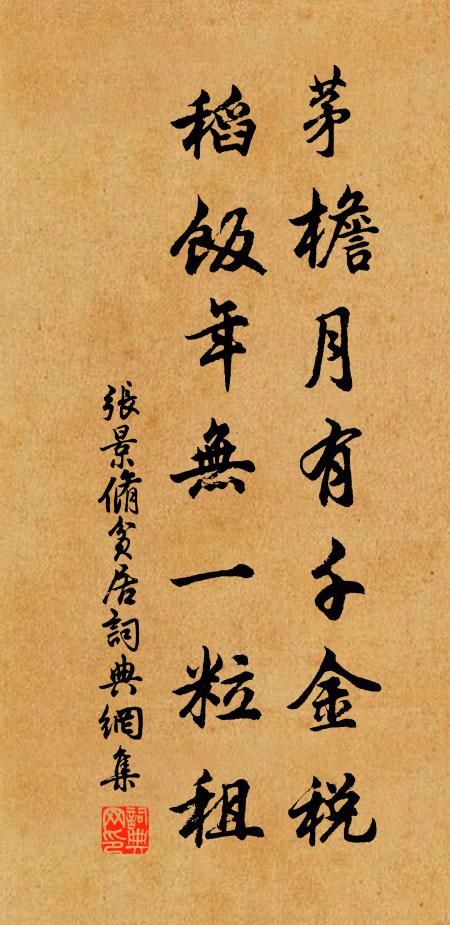 茅檐月有千金税
稻飯年無一粒租
張景脩貧居詞典網集
詞典網印